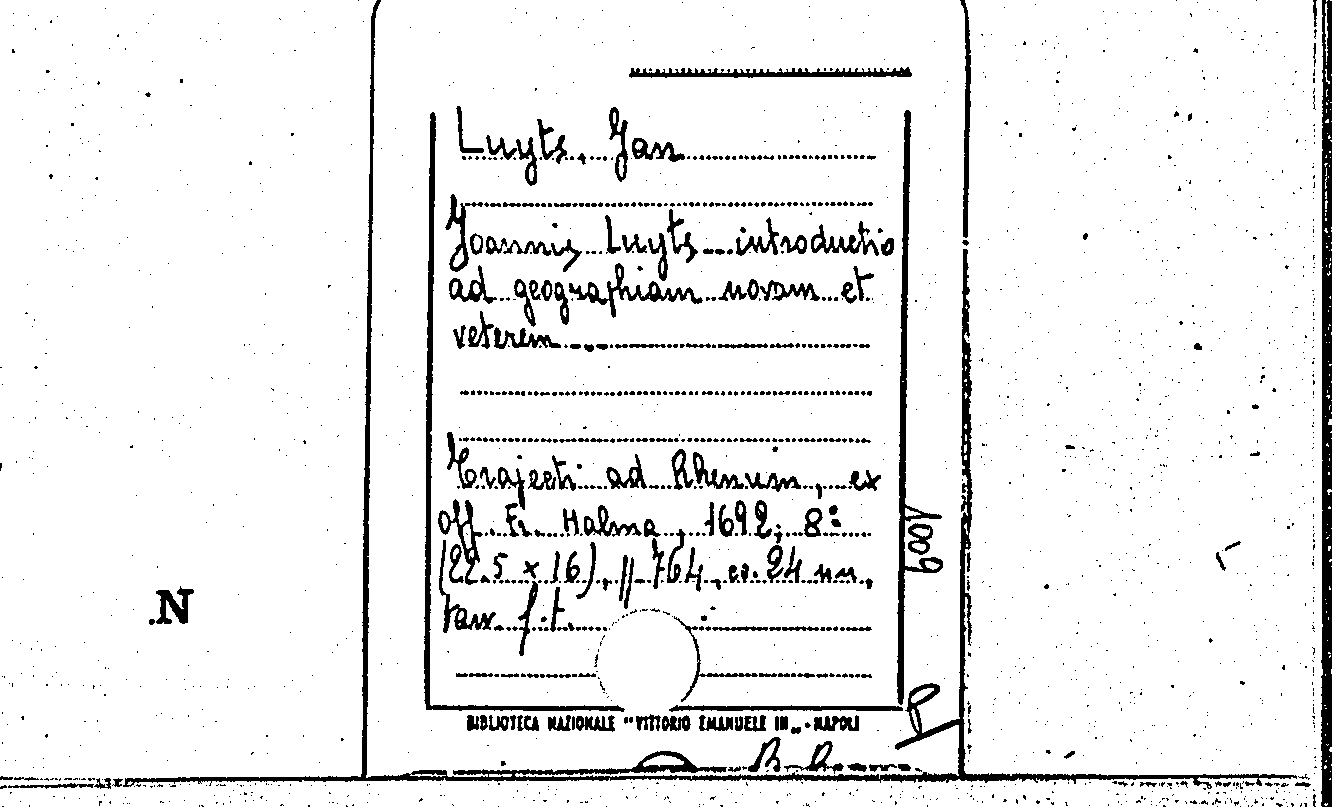 Luyts, Jan
Joannis Luyts... introductio
ad geographiam novam et
veterem ...
Trajecti ad Rhenum, ex
off. Fr. Halma, 1692; 8º
(22.5 x 16), 764, 24
tav. f.t.
BIBLIOTECA NAZIONALE "VITTORIO EMANUELE III„ - NAPOLI
.N